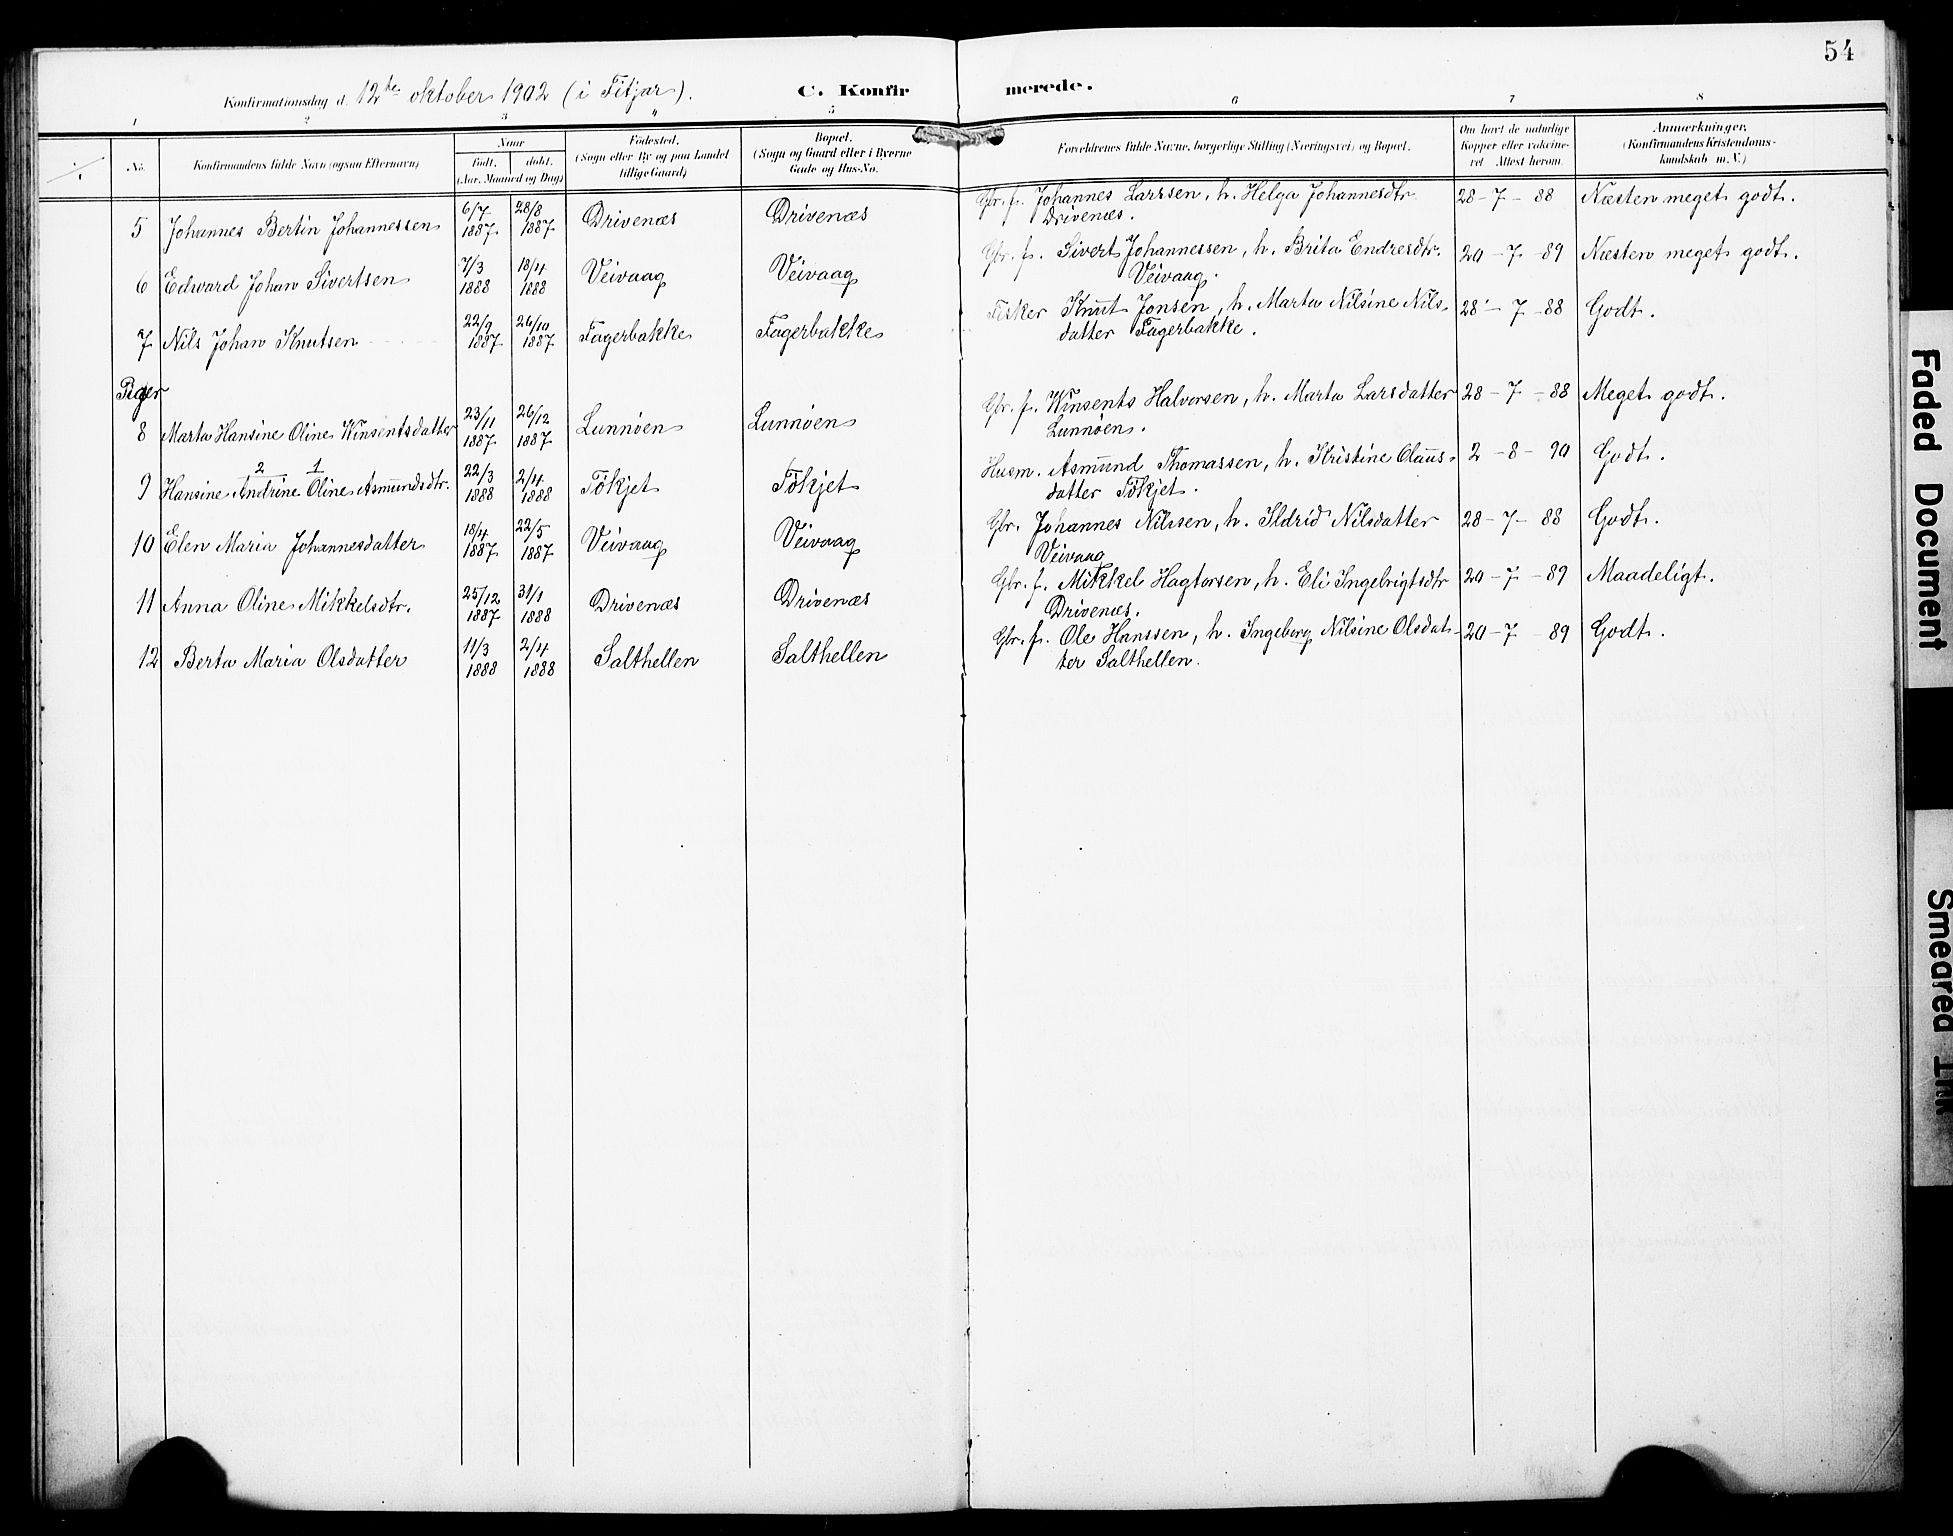 54
Konfirmationsdag d. 12te oktober 1902 (i Fitjar). C. Konfirmerede.
1 2 3 4 5 6 7 8
No. Konfirmandens fulde Navn (ogsaa Efternavn)
Naar
født. døbt.
(Aar, Maaned og Dag)
Fødested.
(Sogn eller By og paa Landet
tillige Gaard)
Bopæl.
(Sogn og Gaard eller i Byerne
Gade og Hus-No.
Forældrenes fulde Navne, borgerlige Stilling (Næringsvei) og Bopæl.
Om havt de naturlige
Kopper eller vakcine-
ret Attest herom.
Anmærkninger.
(Konfirmandens Kristendoms-
kundskab m. V.)
5 Johannes Bertin Johannessen 6/7 1887 28/8 1887 Drivenæs Drivenæs Gbr. f. Johannes Larssen, h. Helga Johannesdtr. 28-7-88 Næsten meget godt.
Drivenæs.
6 Edward Johan Sivertsen 7/3 1888 18/4 1888 Veivaag Veivaag Gbr. f. Sivert Johannessen, h. Brita Endresdtr. 20-7-89 Næsten meget godt.
Veivaag.
7 Nils Johan Knutsen 22/9 1887 26/10 1887 Fagerbakke Fagerbakke Fisker Knut Jonsen, h. Marta Nilsine Nils- 28-7-88 Godt.
datter Fagerbakke.
Piger
8 Marta Hansine Oline Winsentsdatter 23/11 1887 26/12 1887 Lunnøen Lunnøen Gbr. f. Winsents Halvorsen, h. Marta Larsdatter 28-7-88 Meget godt.
Lunnøen.
2 1
9 Hansine Andrine Oline Asmundsdtr. 22/3 1888 2/4 1888 Tökjet Tökjet Husm. Asmund Thomassen, h. Kristine Claus- 2-8-90 Godt.
datter Tökjet.
10 Elen Maria Johannesdatter 18/4 1887 22/5 1887 Veivaag Veivaag Gbr. Johannes Nilssen, h. Ildrid Nilsdatter 28-7-88 Godt.
Veivaag
11 Anna Oline Mikkelsdtr. 25/12 1887 31/1 1888 Drivenæs Drivenæs Gbr. f. Mikkel Hagtorsen, h. Eli Ingebrigtsdtr 20-7-89 Maadeligt.
Drivenæs.
12 Berta Maria Olsdatter 11/3 1888 2/4 1888 Salthellen Salthellen Gbr. f. Ole Hanssen, h. Ingeborg Nilsine Olsdat- 20-7-89 Godt.
ter Salthellen.
Faded Document
Smeared Ink